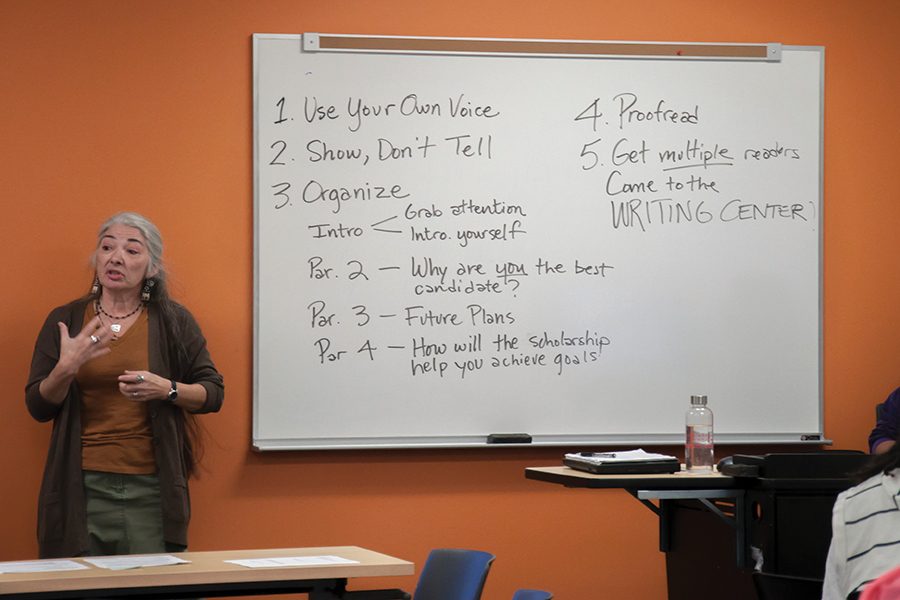 1. Use Your Own Voice
2. Show, Don't Tell
3. Organize
Intro
Grab attention
Intro. yourself
Par. 2 — Why are you the best
candidate?
Par. 3 — Future Plans
Par 4 — How will the scholarship
help you achieve goals
4. Proofread
5. Get multiple readers
Come to the
WRITING CENTER!